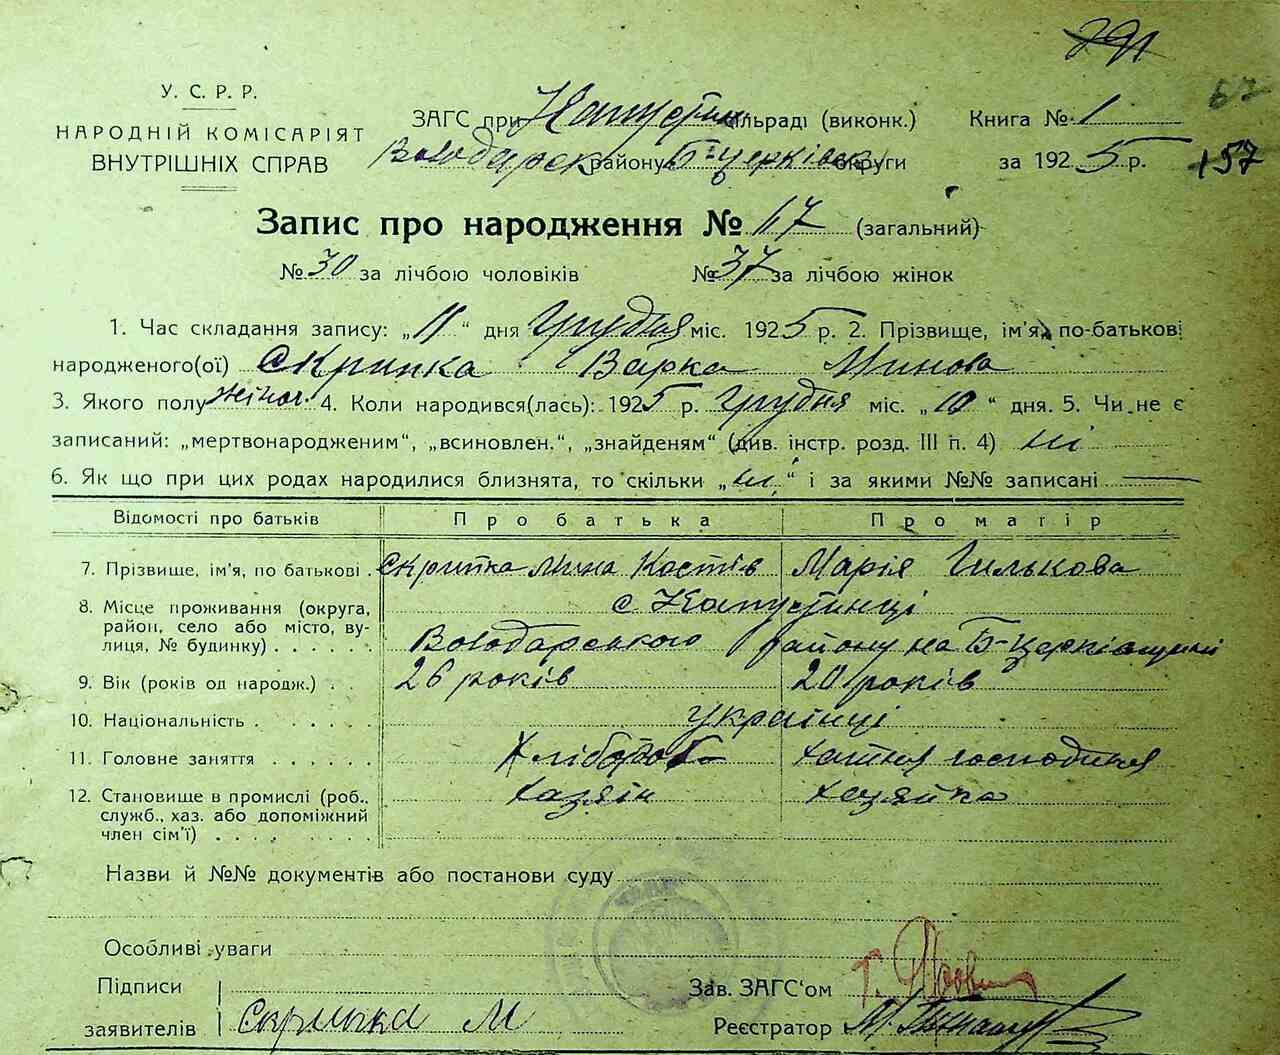 У. С. Р. Р.
НАРОДНІЙ КОМІСАРІЯТ
ВНУТРІШНІХ СПРАВ
ЗАГС при Капустин сільраді (виконк.) Книга № 1
Володарск району Б-Церківськ округи за 1925 р.
67
157
Запис про народження № 67 (загальний)
№ 30 за лічбою чоловіків № 37 за лічбою жінок
1. Час складання запису: „11“ дня Грудня міс. 1925 р. 2. Прізвище, ім'я, по-батькові
народженого(ої) Скрипка Варка Минова
3. Якого полу жіноч. 4. Коли народився(лась): 1925 р. Грудня міс. „10“ дня. 5. Чи не є
записаний: „мертвонародженим“, „всиновлен.“, „знайденям“ (див. інстр. розд. III п. 4) ні
6. Як що при цих родах народилися близнята, то скільки „ні“ і за якими №№ записані —
Відомості про батьків Про батька Про матір
7. Прізвище, ім'я, по батькові . Скрипка Мина Костів Марія Гилькова
8. Місце проживання (округа, район, село або місто, вулиця, № будинку) с Капустинці
Володарського району на Б-Церківщині
9. Вік (років од народж.) . . 26 років 20 років
10. Національність . . . . . . українці
11. Головне заняття . . . . . . Хлібороб хатня господиня
12. Становище в промислі (роб., служб., хаз. або допоміжний член сім'ї) . . . . . . хазяїн хазяйка
Назви й №№ документів або постанови суду
Особливі уваги
Підписи заявителів Скрипка М
Зав. ЗАГС'ом
Реєстратор